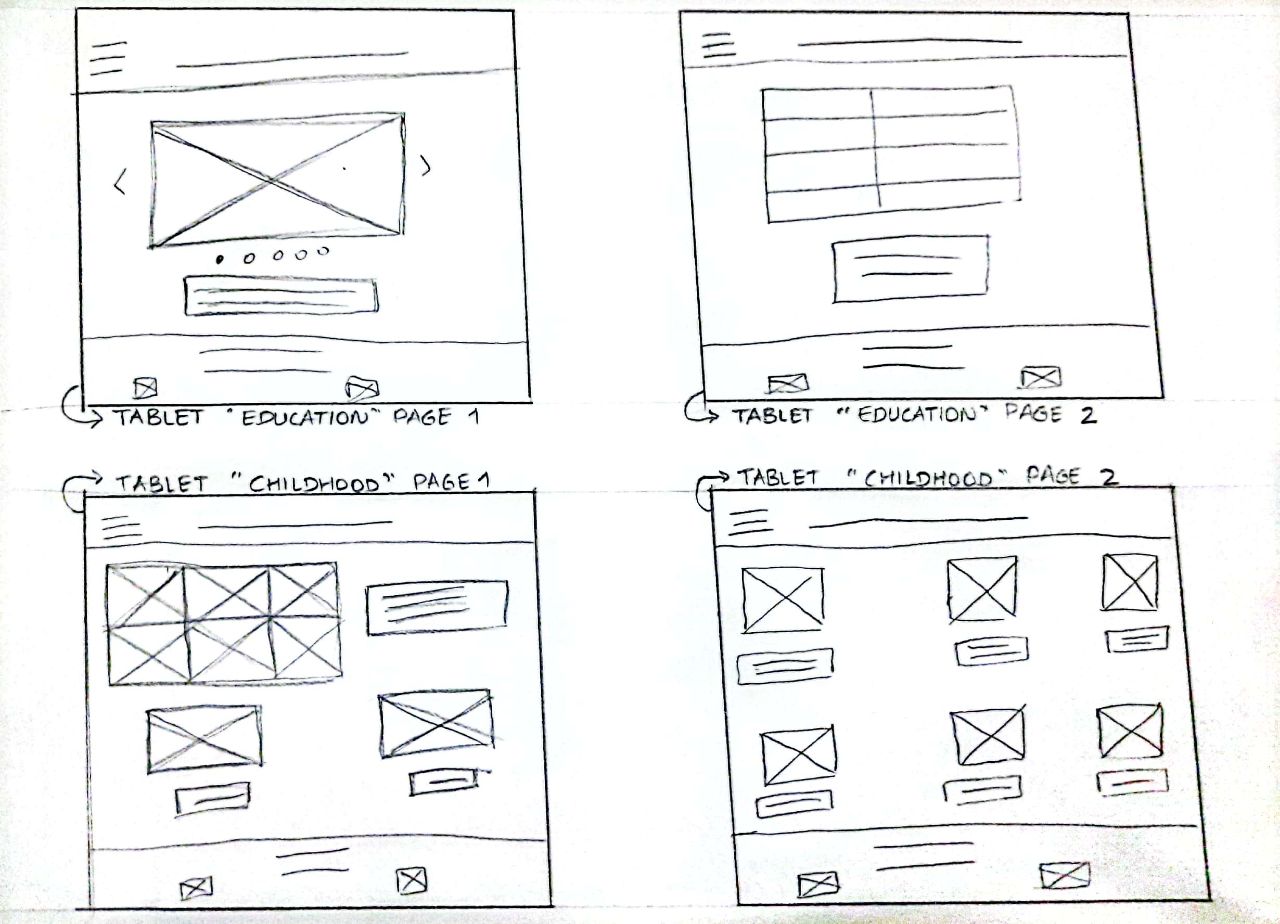 TABLET "EDUCATION" PAGE 1
TABLET "EDUCATION" PAGE 2
TABLET "CHILDHOOD" PAGE 1
TABLET "CHILDHOOD" PAGE 2